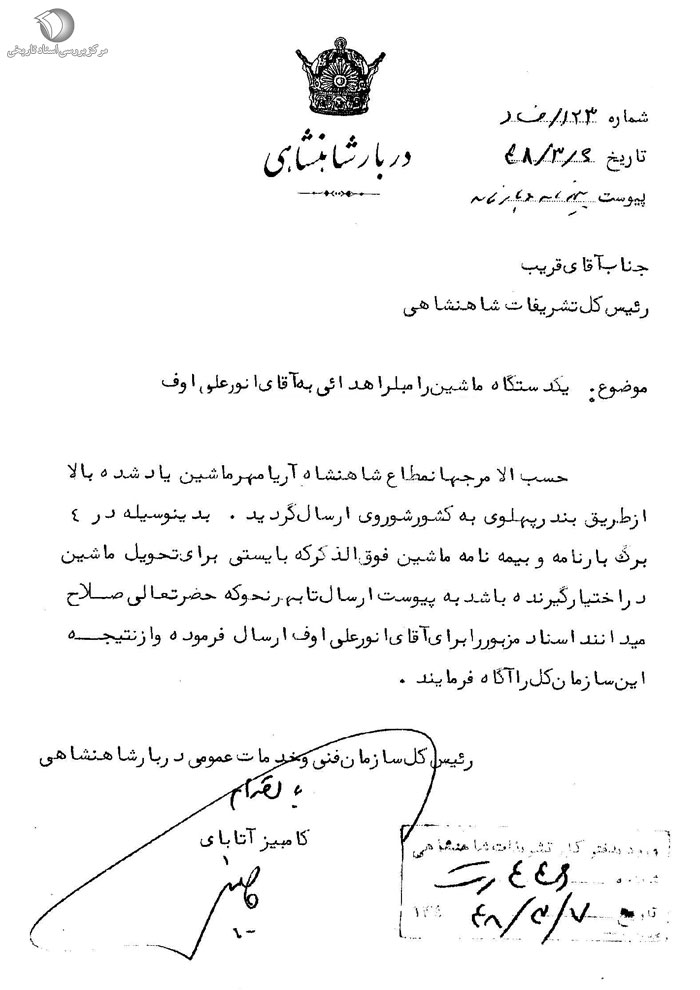 مرکز بررسی اسناد تاریخی
دربار شاهنشاهی
شماره ۱۲۳/ف د
تاریخ ۴۸/۳/۶
پیوست
جناب آقای قریب
رئیس کل تشریفات شاهنشاهی
موضوع: یکدستگاه ماشین رامبلر اهدائی به آقای انور علی اوف
حسب الامر جهانمطاع شاهنشاه آریامهر ماشین یاد شده بالا
از طریق بندر پهلوی به کشور شوروی ارسال گردید . بدینوسیله در ٤
برگ بارنامه و بیمه نامه ماشین فوق الذکر که بایستی برای تحویل ماشین
در اختیار گیرنده باشد به پیوست ارسال تا بهر نحو که حضرتعالی صلاح
میدانند اسناد مزبور را برای آقای انور علی اوف ارسال فرموده و از نتیجه
این سازمان کل را آگاه فرمایند .
رئیس کل سازمان فنی و خدمات عمومی دربار شاهنشاهی
کامبیز آتابای
ورود بدفتر کل تشریفات شاهنشاهی
شماره
تاریخ ۴۸/۳/۷ ۱۳۴